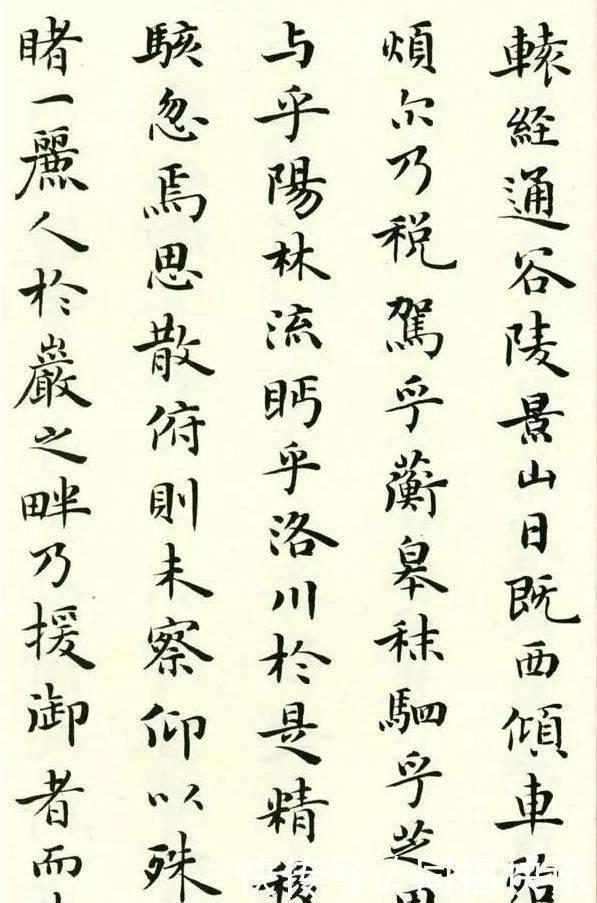 轅経通谷陵景山日既西傾車
煩尔乃税駕乎蘅皋秣駟乎芝
与乎陽林流眄乎洛川於是精移
駭忽焉思散俯則未察仰以殊
睹一麗人於巖之畔乃援御者而
快传号 / 同福快讯